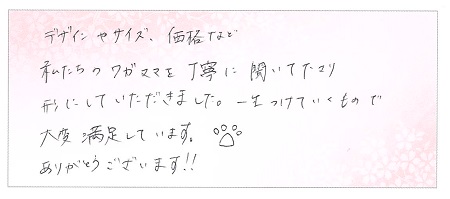 デザインやサイズ、価格など
私たちのワガママを丁寧に聞いて下さり
形にしていただきました。一生つけていくもので
大変満足しています。
ありがとうございます!!